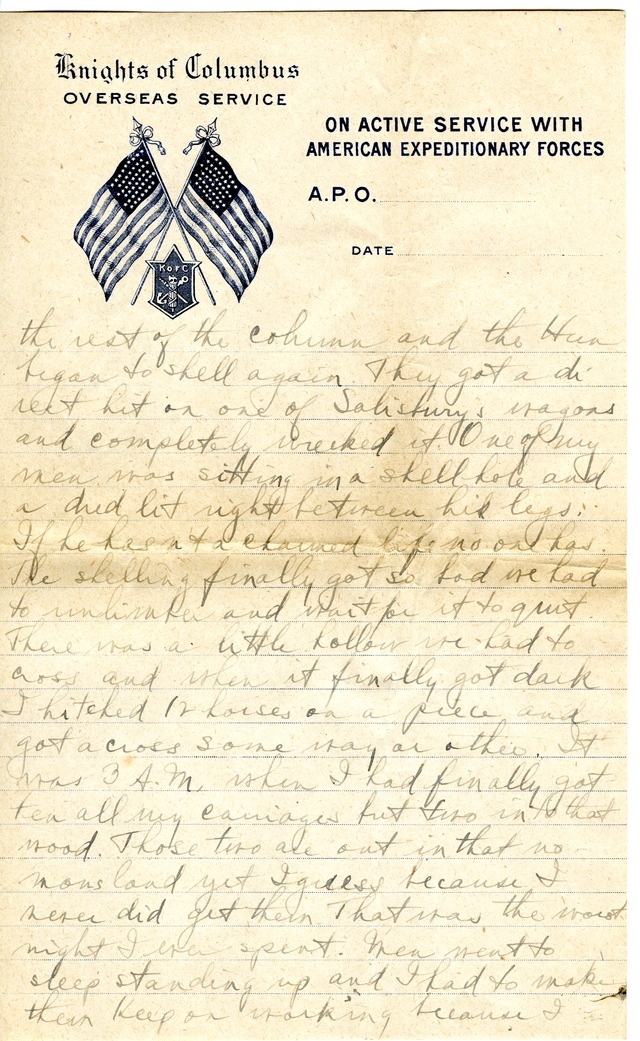 Knights of Columbus
OVERSEAS SERVICE
ON ACTIVE SERVICE WITH
AMERICAN EXPEDITIONARY FORCES
A.P.O.
DATE
K of C
the rest of the column and the Hun
began to shell again. They got a di
rect hit on one of Salisbury's wagons
and completely wrecked it. One of my
men was sitting in a shell hole and
a dud lit right between his legs.
If he hasn't a charmed life no one has.
The shelling finally got so bad we had
to unlimber and wait for it to quit.
There was a little hollow we had to
cross and when it finally got dark
I hitched 12 horses on a piece and
got across some way or other. It
was 3 A.M. when I had finally got
ten all my carriages but two into that
wood. Those two are out in that no-
mans land yet I guess because I
never did get them. That was the worst
night I ever spent. Men went to
sleep standing up and I had to make
them keep on working because I